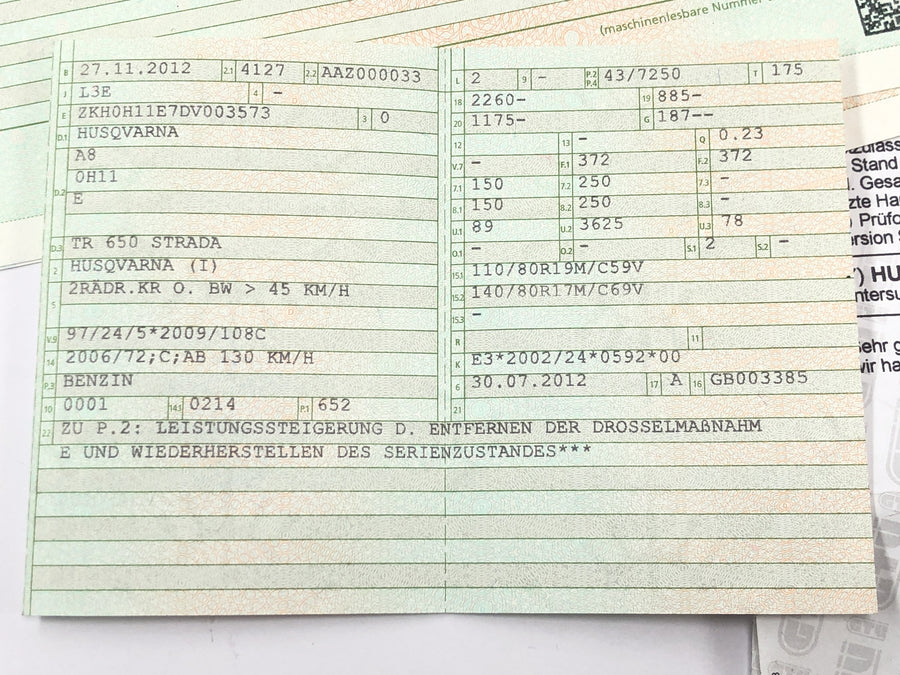 (maschinenlesbare Nummer
B 27.11.2012 2.1 4127 2.2 AAZ000033
J L3E 4 -
E ZKH0H11E7DV003573 3 0
D.1 HUSQVARNA
A8
D.2 0H11
E
D.3 TR 650 STRADA
2 HUSQVARNA (I)
5 2RÄDR.KR O. BW > 45 KM/H
V.9 97/24/5*2009/108C
14 2006/72;C;AB 130 KM/H
P.3 BENZIN
10 0001 14.1 0214 P.1 652
L 2 9 - P.2 P.4 43/7250 T 175
18 2260- 19 885-
20 1175- G 187--
12 13 - Q 0.23
V.7 - F.1 372 F.2 372
7.1 150 7.2 250 7.3 -
8.1 150 8.2 250 8.3 -
U.1 89 U.2 3625 U.3 78
O.1 - O.2 - S.1 2 S.2 -
15.1 110/80R19M/C59V
15.2 140/80R17M/C69V
15.3 -
R 11
K E3*2002/24*0592*00
6 30.07.2012 17 A 16 GB003385
21
22 ZU P.2: LEISTUNGSSTEIGERUNG D. ENTFERNEN DER DROSSELMAßNAHM
E UND WIEDERHERSTELLEN DES SERIENZUSTANDES***
Stand
) HU